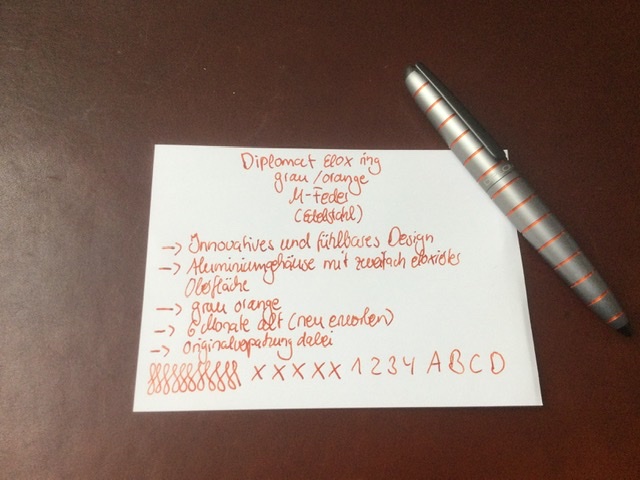 Diplomat Elox ring
grau/orange
M-Feder
(Edelstahl)
→ Innovatives und fühlbares Design
→ Aluminiumgehäuse mit zweifach eloxierter
Oberfläche
→ grau orange
→ 6 Monate alt (neu erworben)
→ Originalverpackung dabei
XXXXX 1234 ABCD